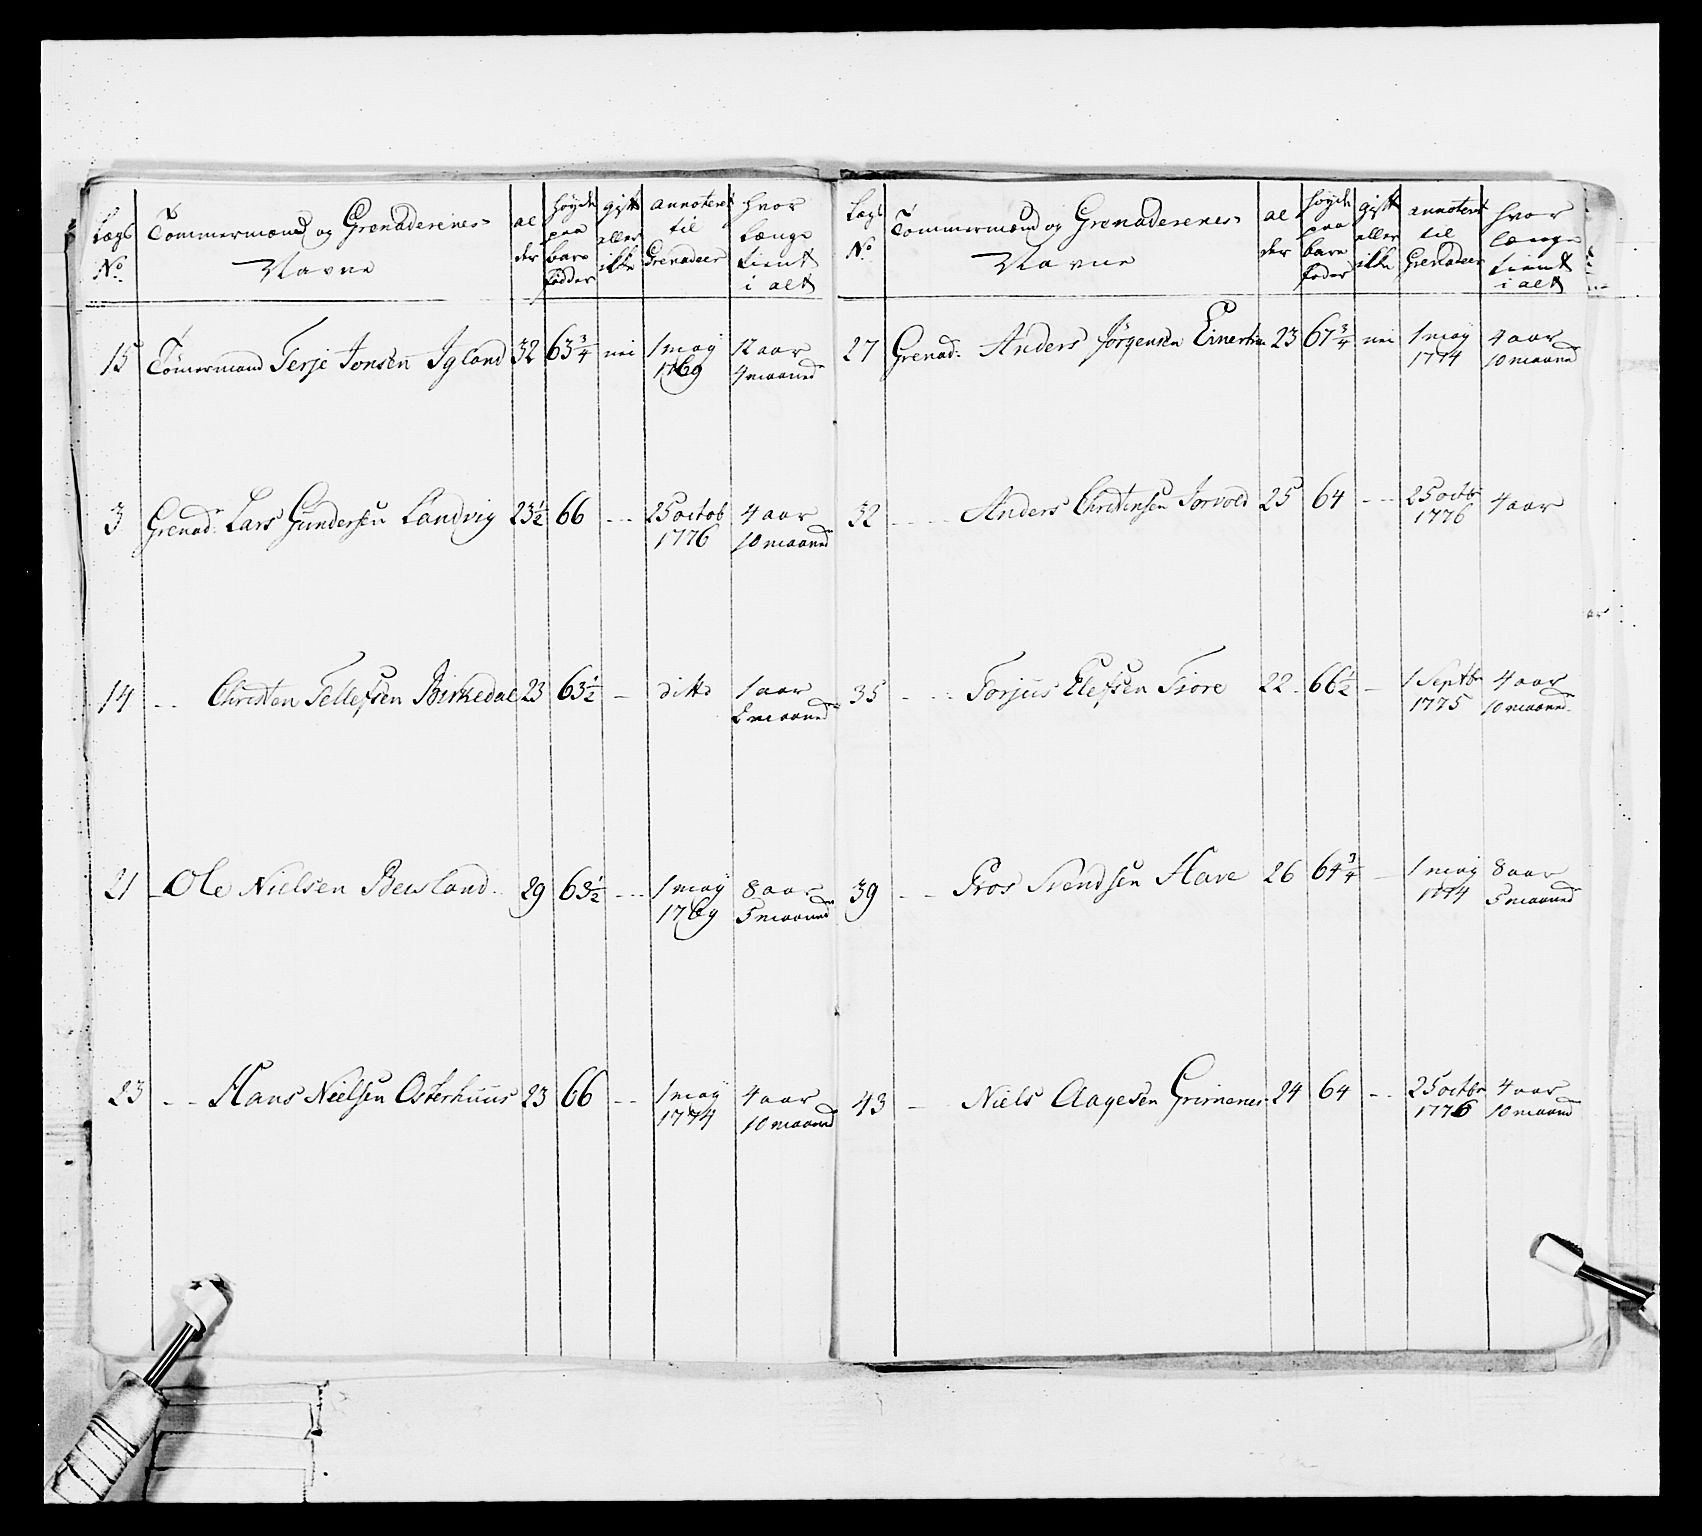 Lægs No
Tømmermænd og Grenaderenes Navne
al der
høyde paa bare fødder
gift eller ikke
annoteret til Grenadeer
hvor længe tient i alt
15 Tømermand Terje Jonsen Igland 32 63 3/4 nei 1 may 1769 12 aar 4 maaned
3 Grenad: Lars Gundersen Landvig 23 1/2 66 - - 25 octob 1776 4 aar 10 maaned
14 - - Christen Tellefsen Birkedal 23 63 1/2 - ditto 1 aar maaned
21 - Ole Nielsen Beusland 29 63 1/2 - - 1 may 1769 8 aar 5 maaned
23 - - Hans Nielsen Osterhuus 23 66 - - 1 may 1774 4 aar 10 maaned
Lægs No
Tømmermænd og Grenaderenes Navne
al der
høyde paa bare føder
gift eller ikke
annoteret til Grenadeer
hvor længe tient i alt
27 Grenad: Anders Jørgensen 23 67 3/4 nei 1 may 1774 4 aar 10 maaned
32 - - Anders Christensen Jorvold 25 64 - - 25 octbr 1776 4 aar
35 - - Torjus Elefsen Fiøre 22 66 1/2 - 1 Septbr 1775 4 aar 10 maaned
39 - - Gros Svendsen Have 26 64 3/4 - 1 may 1774 8 aar 5 maaned
43 - Niels Aagesen Grimenes 24 64 - - 25 octbr 1776 4 aar 10 maaned